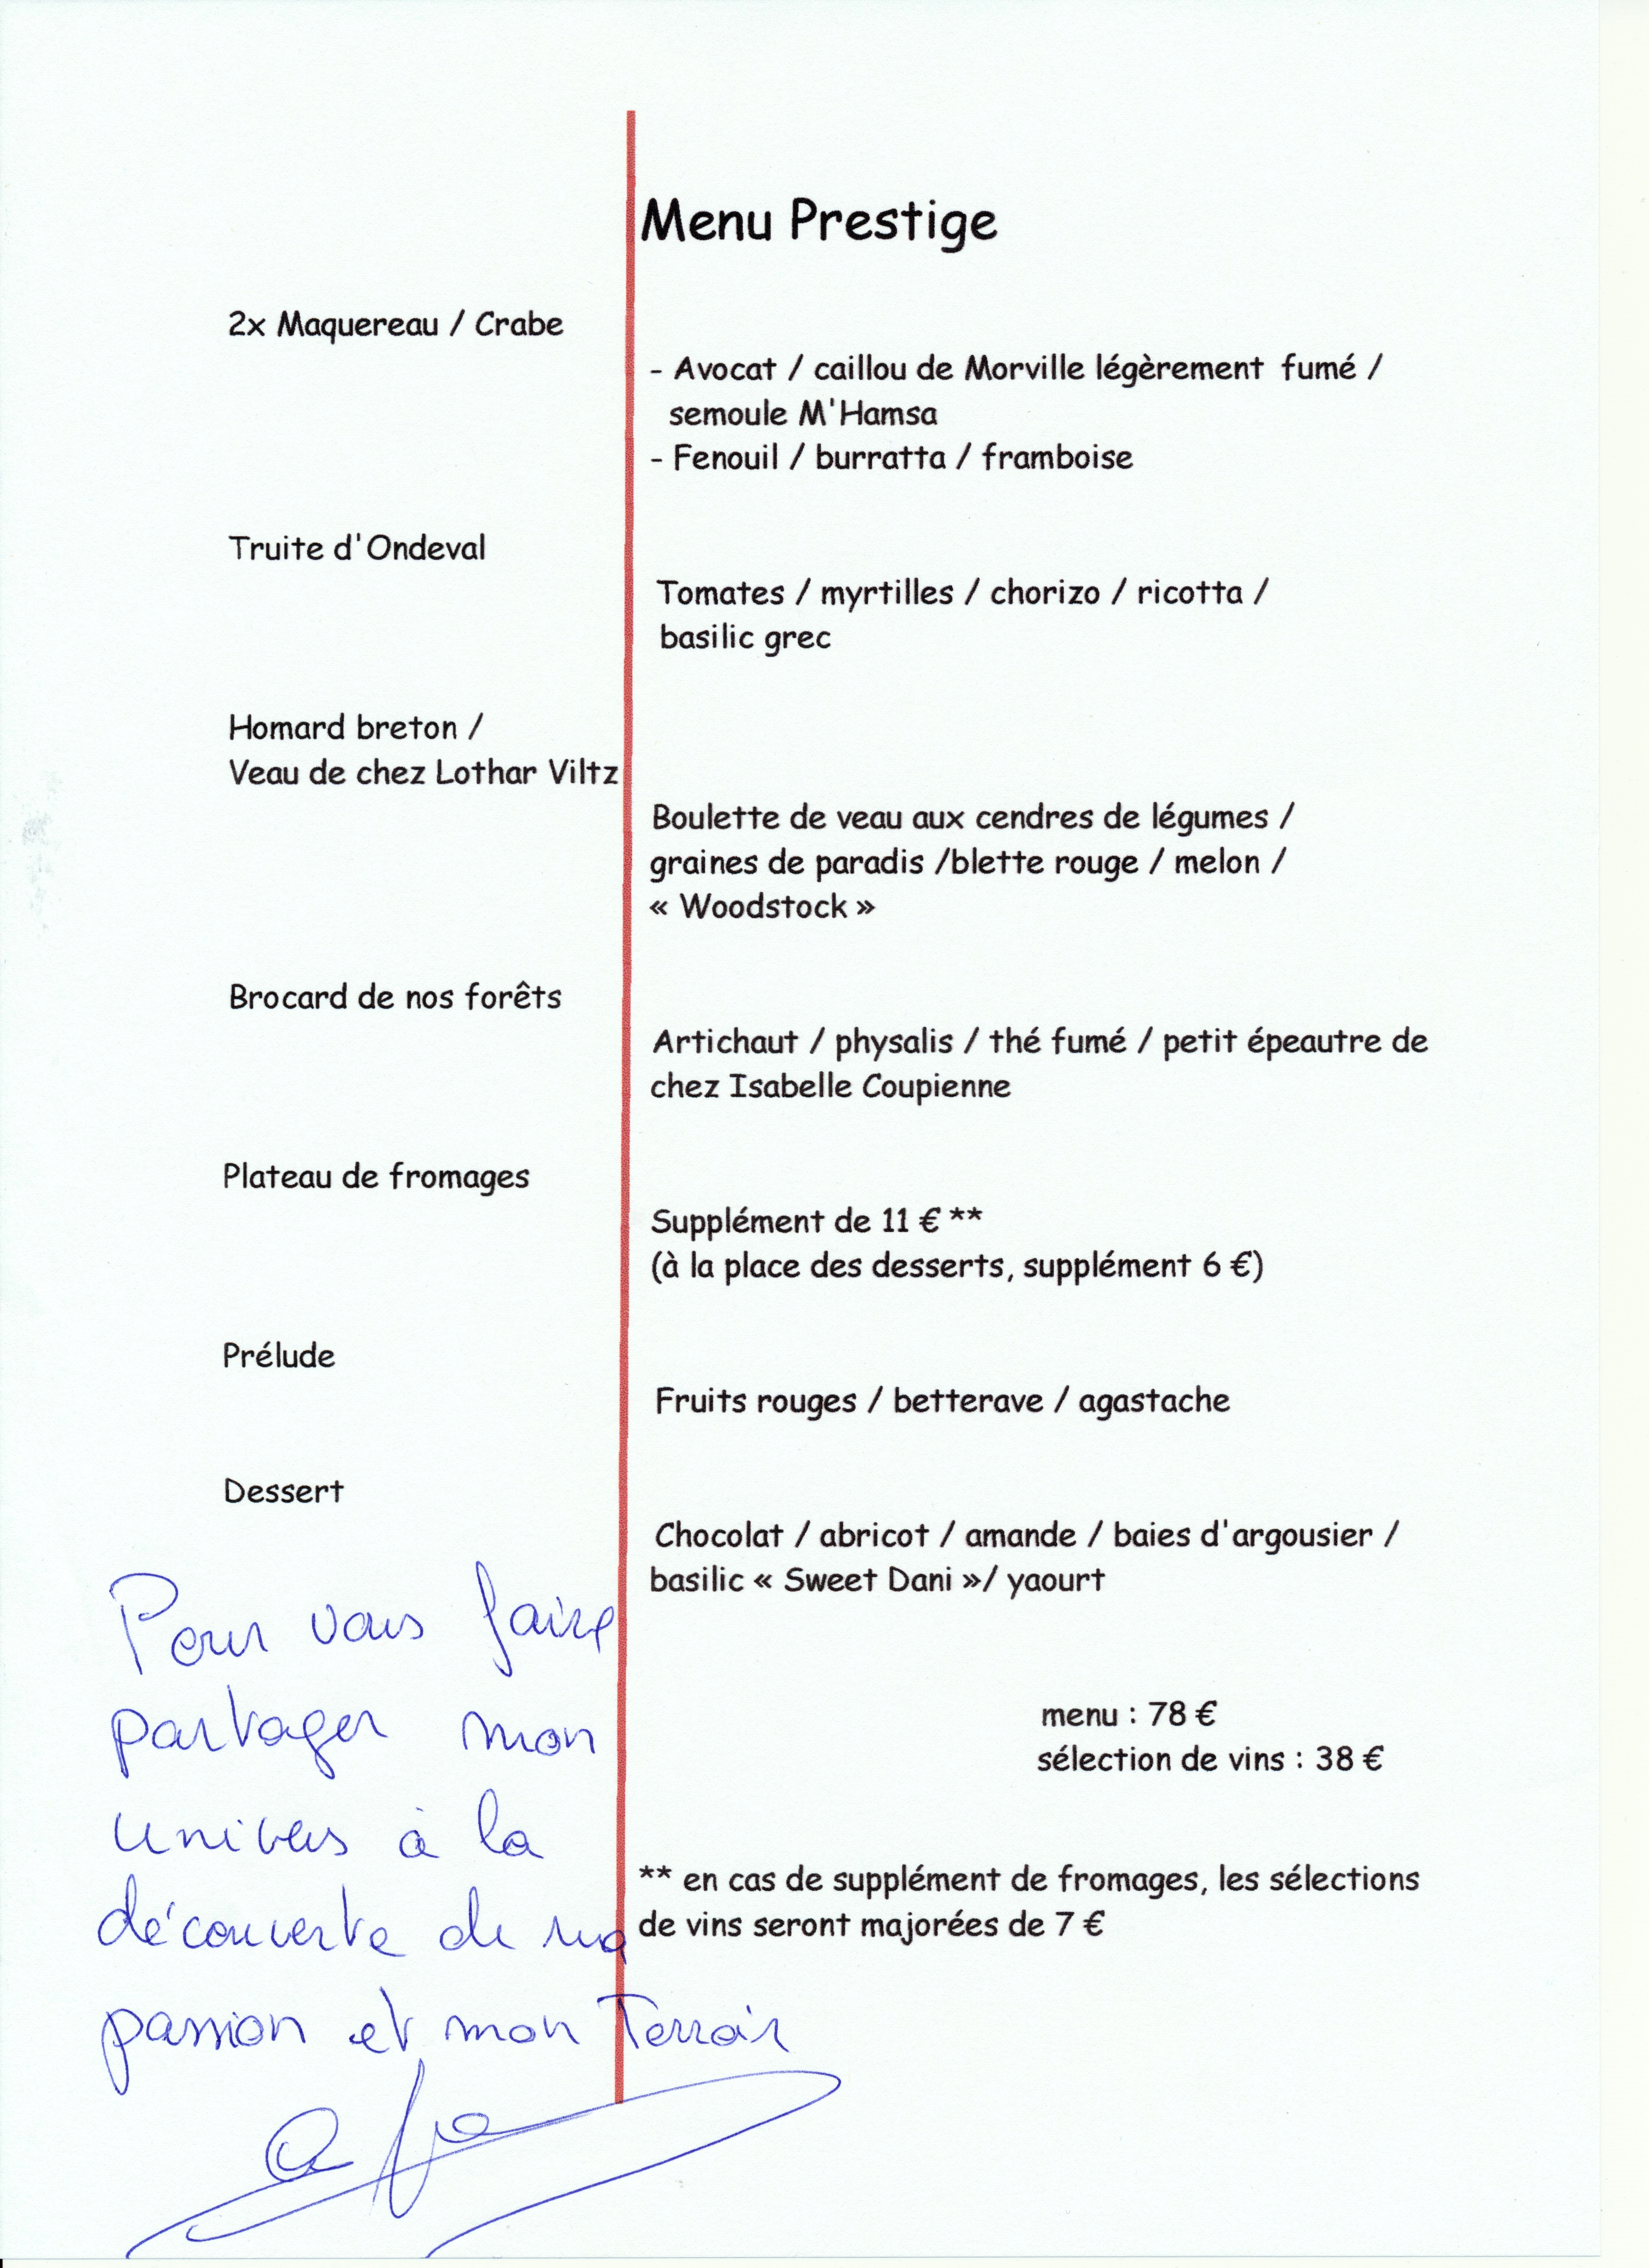 Menu Prestige
2x Maquereau / Crabe
- Avocat / caillou de Morville légèrement fumé /
semoule M'Hamsa
- Fenouil / burratta / framboise
Truite d'Ondeval
Tomates / myrtilles / chorizo / ricotta /
basilic grec
Homard breton /
Veau de chez Lothar Viltz
Boulette de veau aux cendres de légumes /
graines de paradis /blette rouge / melon /
« Woodstock »
Brocard de nos forêts
Artichaut / physalis / thé fumé / petit épeautre de
chez Isabelle Coupienne
Plateau de fromages
Supplément de 11 € **
(à la place des desserts, supplément 6 €)
Prélude
Fruits rouges / betterave / agastache
Dessert
Chocolat / abricot / amande / baies d'argousier /
basilic « Sweet Dani »/ yaourt
menu : 78 €
sélection de vins : 38 €
** en cas de supplément de fromages, les sélections
de vins seront majorées de 7 €
Pour vous faire
partager mon
univers à la
découverte de ma
passion et mon Terroir